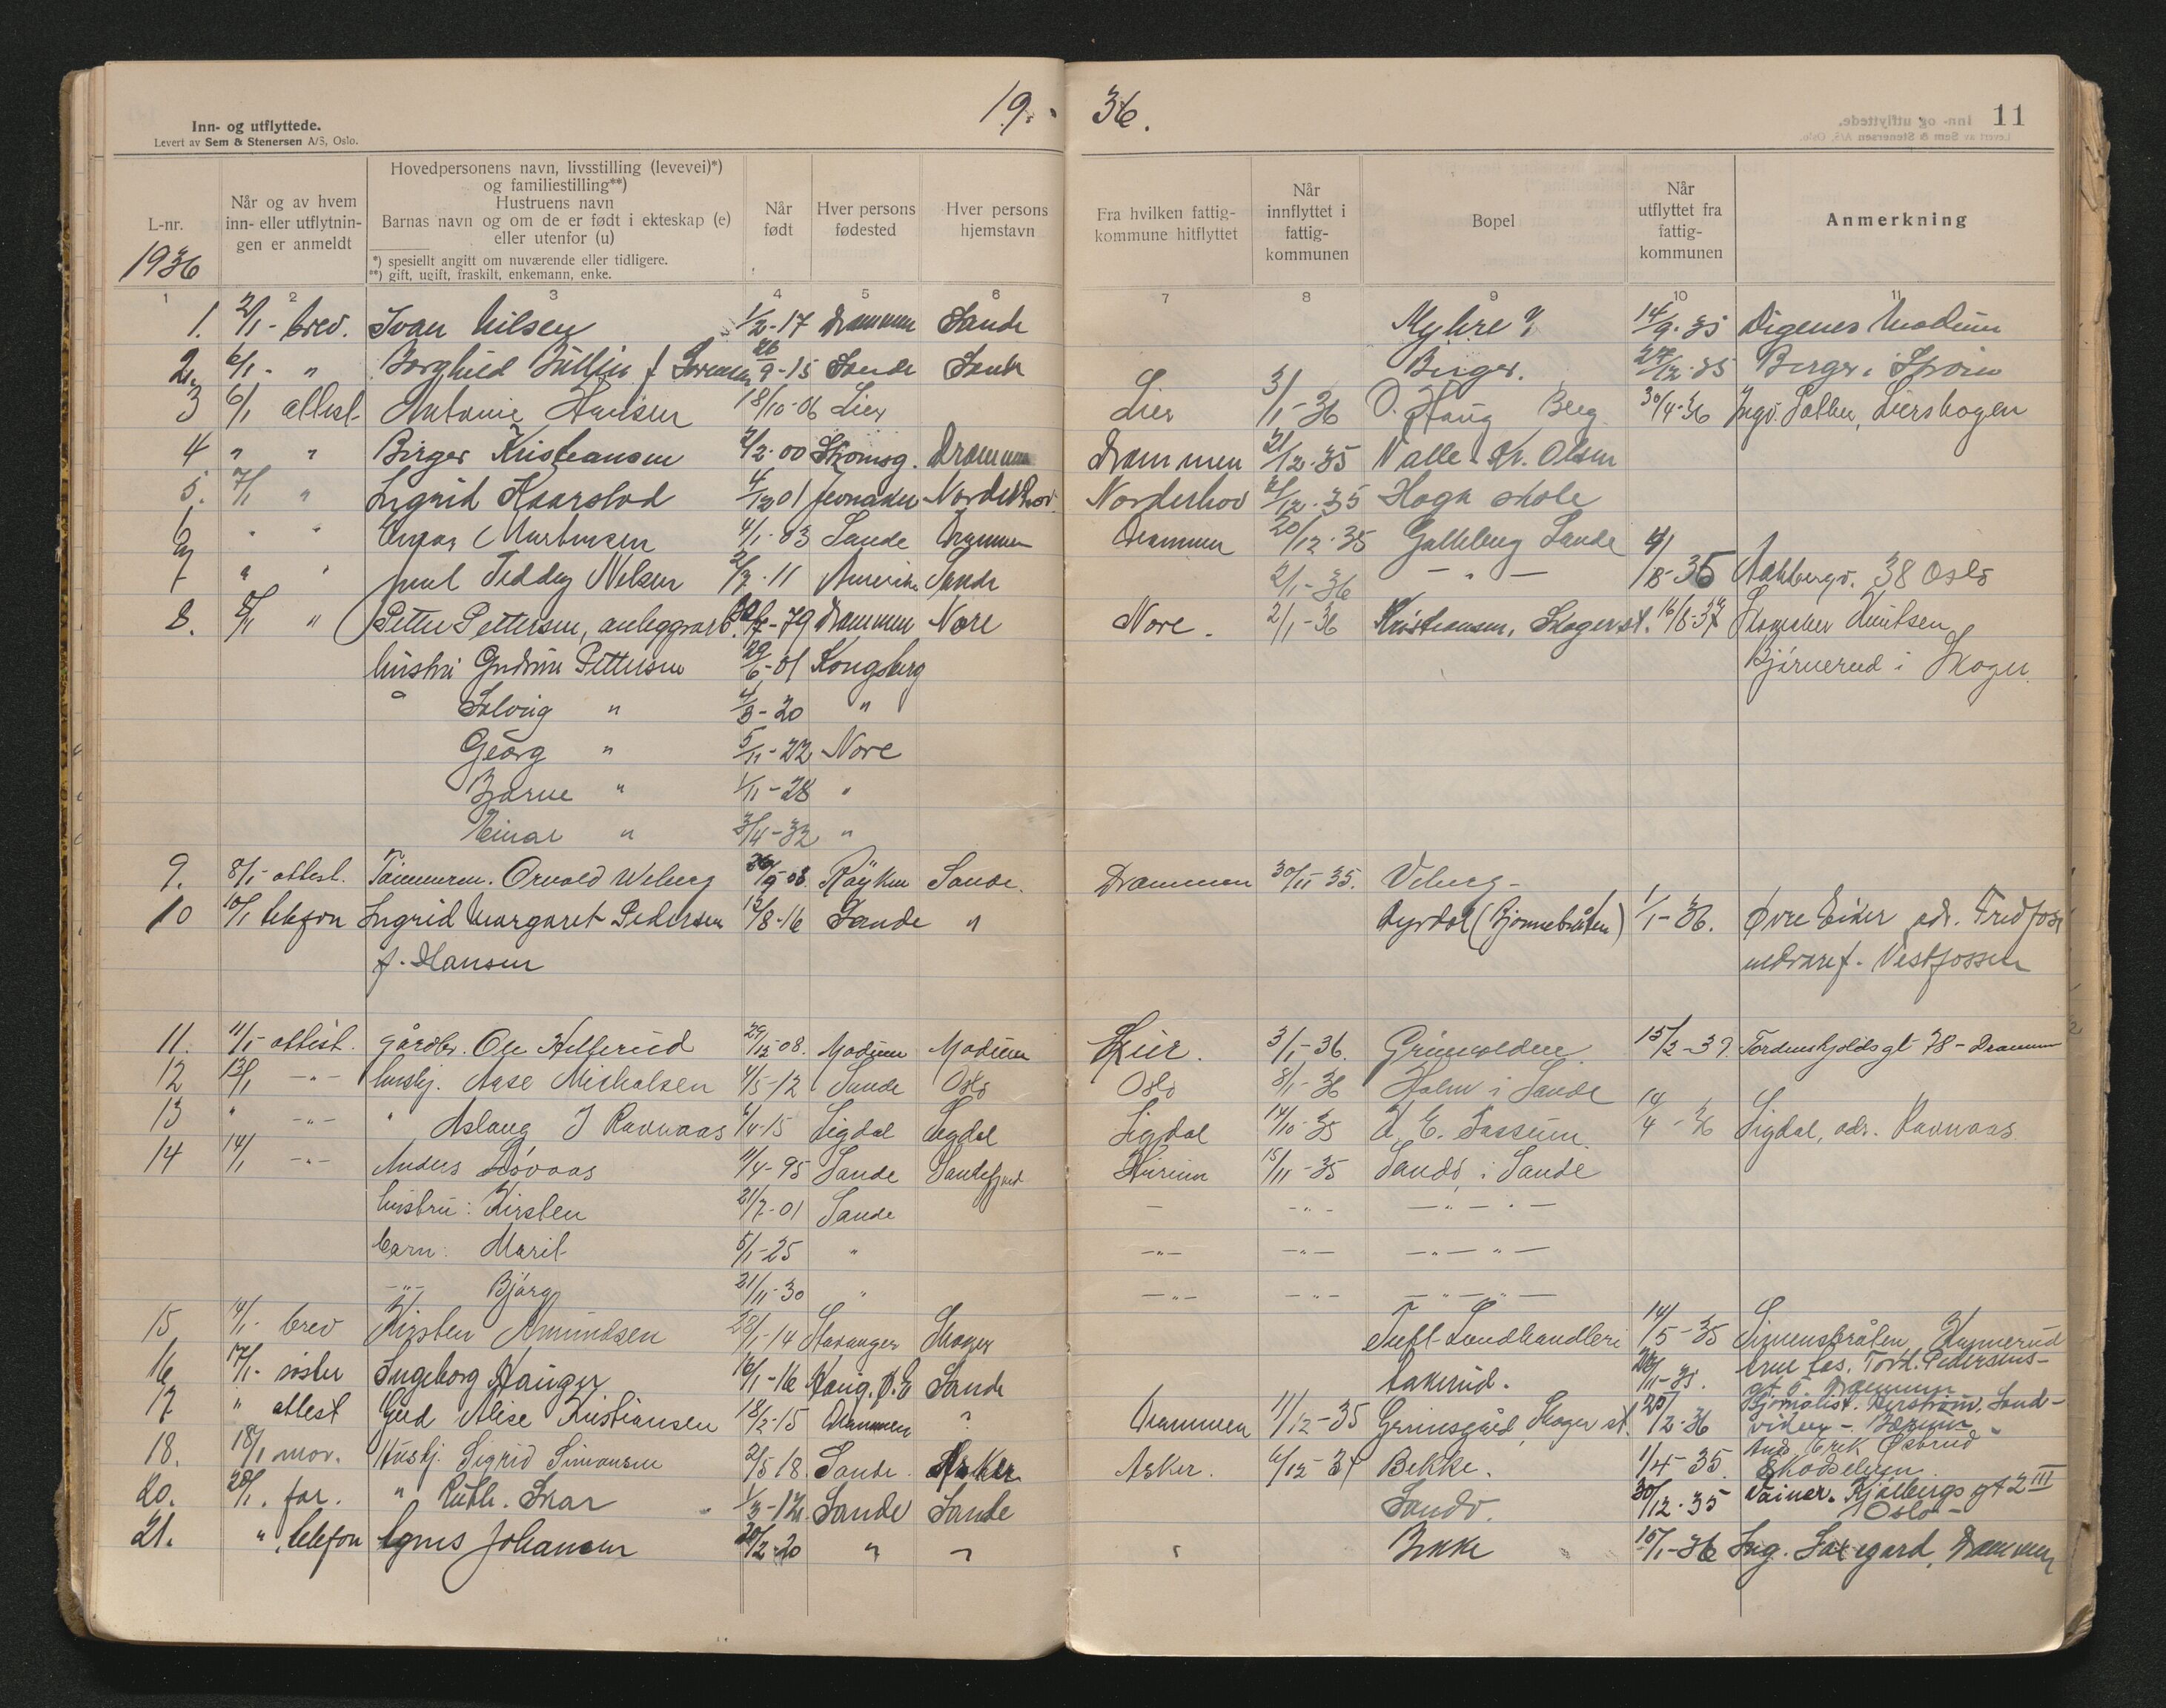 19. 36.
Inn- og utflyttede.
Levert av Sem & Stenersen A/S, Oslo.
11
L-nr.
1936
Når og av hvem
inn- eller utflytnin-
gen er anmeldt
Hovedpersonens navn, livsstilling (levevei)*)
og familiestilling**)
Hustruens navn
Barnas navn og om de er født i ekteskap (e)
eller utenfor (u)
*) spesielt angitt om nuværende eller tidligere.
**) gift, ugift, fraskilt, enkemann, enke.
Når
født
Hver persons
fødested
Hver persons
hjemstavn
Fra hvilken fattig-
kommune hitflyttet
Når
innflyttet i
fattig-
kommunen
Bopel
Når
utflyttet fra
fattig-
kommunen
Anmerkning
1 2 3 4 5 6 7 8 9 10 11
1. 2/1 - brev. Ivar Nilsen 1/2-17 Drammen Sande Myhre 14/9-35 Digenes Modum
2. 6/1 - " Borghild f. Sorensen 26/9-15 Sande Sande Berger. 27/12-35 Berger i
3 6/1 attest. Antonie Hansen 18/10-06 Lier Lier 3/1-36 O. Haug Berg 30/4-36 Lierskogen
4 " " Birger Kristiansen 2/2-00 Drammen Drammen 21/12-35 Valle Olsen
5. 7/1 " Ingrid Kaarstad Jevnaker Norderhov Norderhov 12-35 Haga skole
6 " " Martinsen 4/1-03 Sande Drammen Drammen 20/12-35 Galleberg Sande
7 " " Teddy Nelsen 11 Sande 2/1-36 — " — 35 38 Oslo
8. 8/1 " Petter Pettersen, anleggsarb. 79 Drammen Nore Nore. 2/1-36 Kristiansen, Skoger st. 16/8-37 Skomaker Knutsen
hustru Gudrun Pettersen 29/6-01 Kongsberg Bjørnerud i Skoger.
Solveig " 3-20 "
Georg " 5/11-22 Nore
Bjarne " 1/11-28 "
Einar " 3/4-32 "
9. 8/1- attest. Tømmerm. Orvald Weberg 08 Røyken Sande. Drammen 30/11-35. Viberg-
10 10/1 telefon Ingrid Margaret Pedersen 12/8-16 Sande " Dyrdal (Bjønnebråten) 1/1-36. Øvre Eiker adr. Fredfoss
f. Hansen Vestfossen
11. 11/1- attest. Gårdbr. Ole Hellerud 29/12-08. Modum Modum Lier. 3/1-36. 15/2-37. Tordenskjolds gt 78 - Drammen
12 13/1 — " — hushj. Aase Michalsen 4/5-12 Sande Oslo Oslo 8/1-36 Holm i Sande
13 " — " — " Aslaug J Ravnaas 4-15 Sigdal Sigdal Sigdal 14/10-35 14/4-36 Sigdal, adr. Ravnaas.
14 14/1 — " — Anders Løvaas 11/4-95 Sande Sandefjord Hurum 15/11-35 Sandø i Sande
hustru: Kirsten 21/7-01 Sande — — " — — " — " —
barn: Marit 5/1-25 " — " — — " — — " — " —
— " — Bjørg 21/11-30 " — " — — " — — " — " —
15 14/1- brev Kirsten Amundsen 14 Stavanger Skoger Tuft Landhandleri 14/5-35 Simensbråten,
16 17/1- søster Ingeborg Hauger 16/1-16 Haug. Ø.E Sande Aakerud. 35. Torvl. Pedersens-
gt 5. Drammen
17 " attest Gerd Alise Kristiansen 18/2-15 Drammen ? Drammen 11/12-35 Grimsgård, Skoger st. 12-36 Sand-
viken - Bærum
18. 18/1 mor. Hushj. Sigrid Simonsen 2/5-18. Sande Asker Asker. Bekke. 1/4-35.
20. 20/1. far. " Ruth. Skar 1/3-12. Sande Sande Sandø. 30/12-35 gt 2 III
Oslo -
21. " telefon Agnes Johansen 20/2-20 " " " Bekke 15/1-36 Ing. Drammen